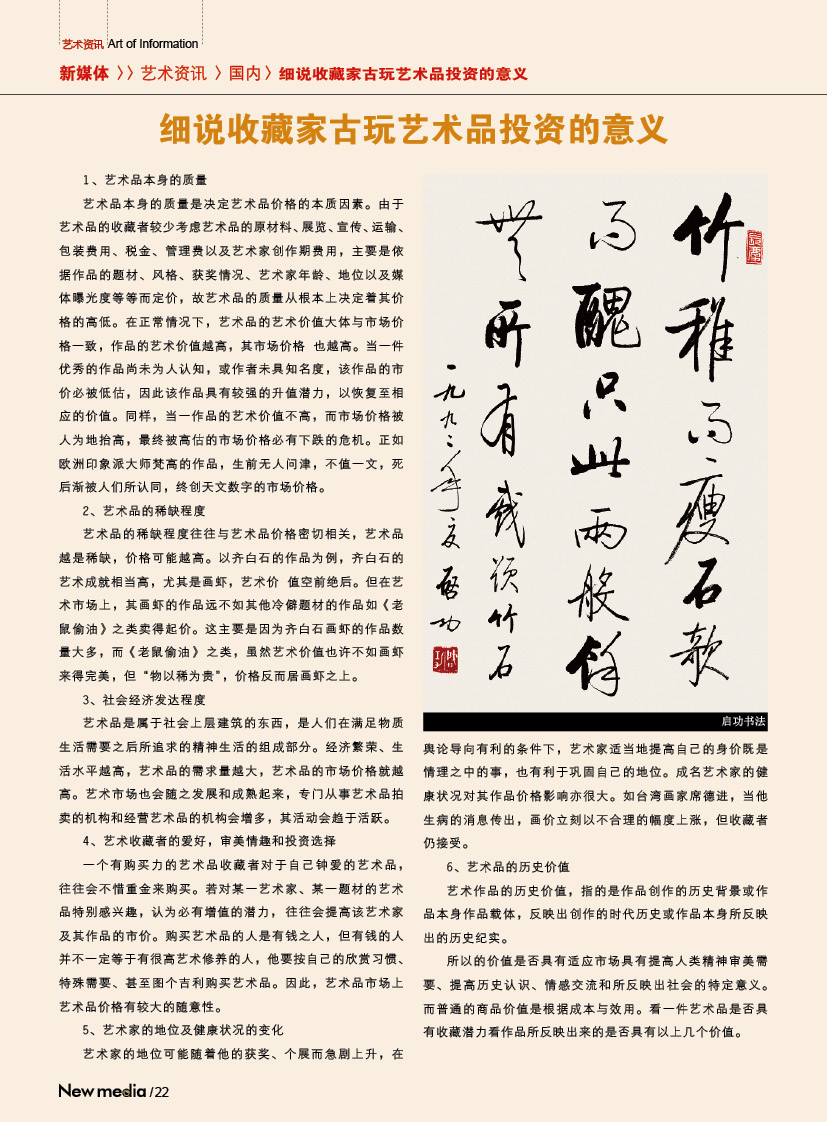 艺术资讯 Art of Information
新媒体 〉〉艺术资讯 〉国内〉细说收藏家古玩艺术品投资的意义
细说收藏家古玩艺术品投资的意义
1、艺术品本身的质量
艺术品本身的质量是决定艺术品价格的本质因素。由于
艺术品的收藏者较少考虑艺术品的原材料、展览、宣传、运输、
包装费用、税金、管理费以及艺术家创作期费用，主要是依
据作品的题材、风格、获奖情况、艺术家年龄、地位以及媒
体曝光度等等而定价，故艺术品的质量从根本上决定着其价
格的高低。在正常情况下，艺术品的艺术价值大体与市场价
格一致，作品的艺术价值越高，其市场价格 也越高。当一件
优秀的作品尚未为人认知，或作者未具知名度，该作品的市
价必被低估，因此该作品具有较强的升值潜力，以恢复至相
应的价值。同样，当一作品的艺术价值不高，而市场价格被
人为地抬高，最终被高估的市场价格必有下跌的危机。正如
欧洲印象派大师梵高的作品，生前无人问津，不值一文，死
后渐被人们所认同，终创天文数字的市场价格。
2、艺术品的稀缺程度
艺术品的稀缺程度往往与艺术品价格密切相关，艺术品
越是稀缺，价格可能越高。以齐白石的作品为例，齐白石的
艺术成就相当高，尤其是画虾，艺术价 值空前绝后。但在艺
术市场上，其画虾的作品远不如其他冷僻题材的作品如《老
鼠偷油》之类卖得起价。这主要是因为齐白石画虾的作品数
量大多，而《老鼠偷油》之类，虽然艺术价值也许不如画虾
来得完美，但“物以稀为贵”，价格反而居画虾之上。
3、社会经济发达程度
艺术品是属于社会上层建筑的东西，是人们在满足物质
生活需要之后所追求的精神生活的组成部分。经济繁荣、生
活水平越高，艺术品的需求量越大，艺术品的市场价格就越
高。艺术市场也会随之发展和成熟起来，专门从事艺术品拍
卖的机构和经营艺术品的机构会增多，其活动会趋于活跃。
4、艺术收藏者的爱好，审美情趣和投资选择
一个有购买力的艺术品收藏者对于自己钟爱的艺术品，
往往会不惜重金来购买。若对某一艺术家、某一题材的艺术
品特别感兴趣，认为必有增值的潜力，往往会提高该艺术家
及其作品的市价。购买艺术品的人是有钱之人，但有钱的人
并不一定等于有很高艺术修养的人，他要按自己的欣赏习惯、
特殊需要、甚至图个吉利购买艺术品。因此，艺术品市场上
艺术品价格有较大的随意性。
5、艺术家的地位及健康状况的变化
艺术家的地位可能随着他的获奖、个展而急剧上升，在
竹稚而瘦石欹
而醜只此兩般餘
無所有我頌竹石
一九九二年夏 啓功
启功书法
舆论导向有利的条件下，艺术家适当地提高自己的身价既是
情理之中的事，也有利于巩固自己的地位。成名艺术家的健
康状况对其作品价格影响亦很大。如台湾画家席德进，当他
生病的消息传出，画价立刻以不合理的幅度上涨，但收藏者
仍接受。
6、艺术品的历史价值
艺术作品的历史价值，指的是作品创作的历史背景或作
品本身作品载体，反映出创作的时代历史或作品本身所反映
出的历史纪实。
所以的价值是否具有适应市场具有提高人类精神审美需
要、提高历史认识、情感交流和所反映出社会的特定意义。
而普通的商品价值是根据成本与效用。看一件艺术品是否具
有收藏潜力看作品所反映出来的是否具有以上几个价值。
New media /22